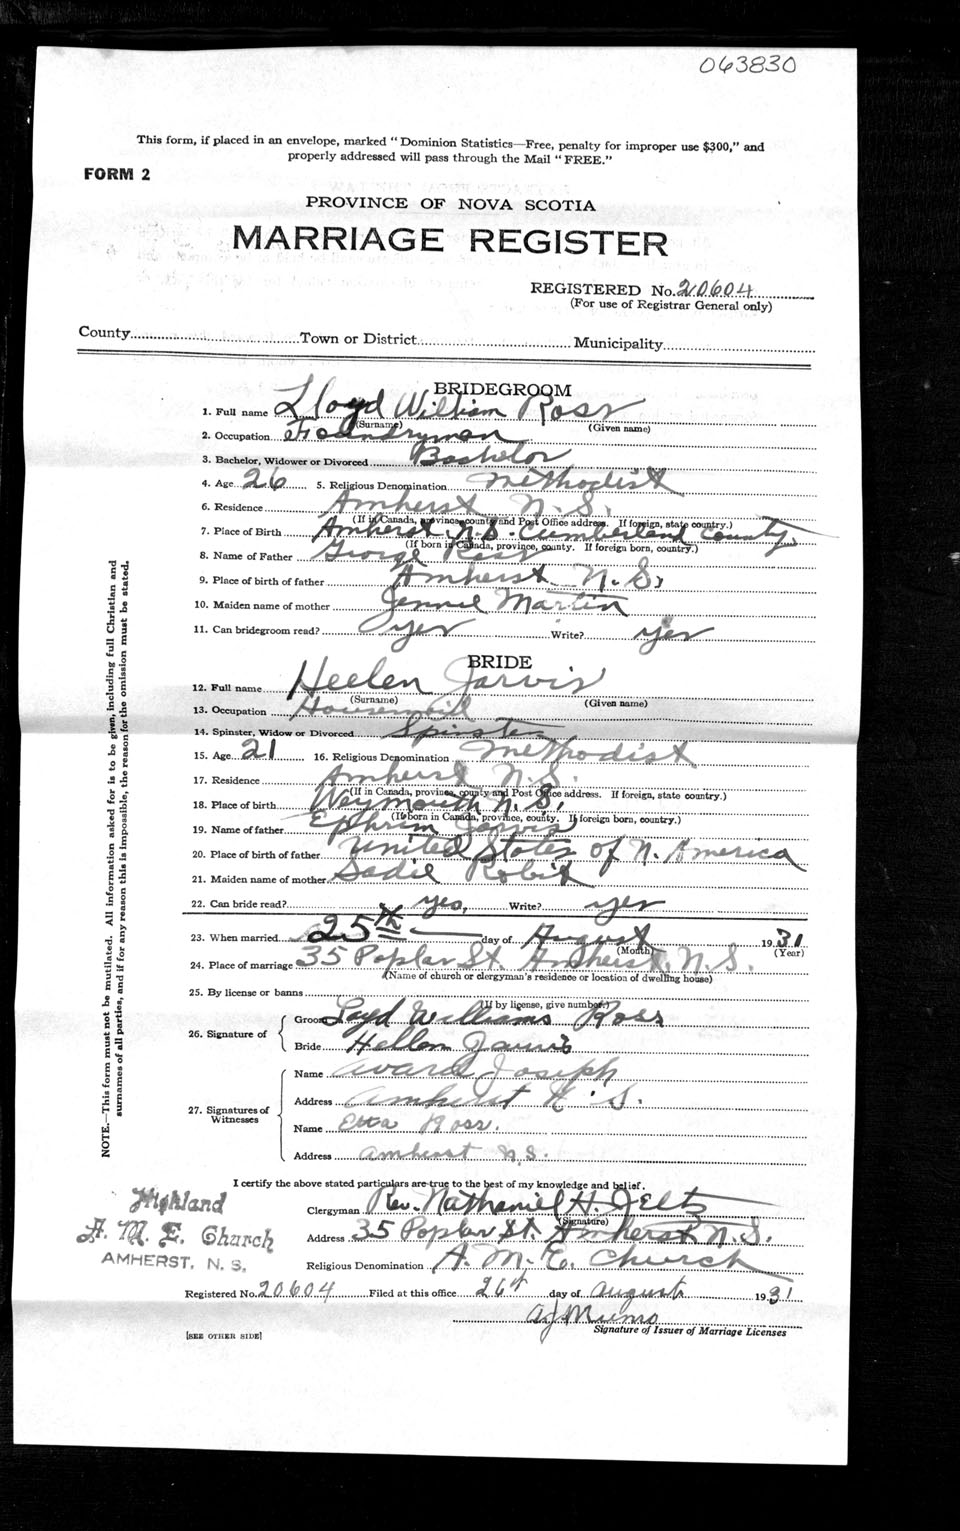 063830
This form, if placed in an envelope, marked "Dominion Statistics—Free, penalty for improper use $300," and
properly addressed will pass through the Mail "FREE."
FORM 2
PROVINCE OF NOVA SCOTIA
MARRIAGE REGISTER
REGISTERED No. 20604
(For use of Registrar General only)
County Town or District Municipality
BRIDEGROOM
1. Full name Lloyd William Ross
(Surname) (Given name)
2. Occupation Foundryman
3. Bachelor, Widower or Divorced Bachelor
4. Age 26 5. Religious Denomination Methodist
6. Residence Amherst N.S.
(If in Canada, province, county and Post Office address. If foreign, state country.)
7. Place of Birth Amherst N.S. Cumberland County
(If born in Canada, province, county. If foreign born, country.)
8. Name of Father George Ross
9. Place of birth of father Amherst N.S.
10. Maiden name of mother Jennie Martin
11. Can bridegroom read? yes Write? yes
BRIDE
12. Full name Heelen Jarvis
(Surname) (Given name)
13. Occupation Housemaid
14. Spinster, Widow or Divorced Spinster
15. Age 21 16. Religious Denomination Methodist
17. Residence Amherst N.S.
(If in Canada, province, county and Post Office address. If foreign, state country.)
18. Place of birth Weymouth N.S.
(If born in Canada, province, county. If foreign born, country.)
19. Name of father Ephrim Jarvis
20. Place of birth of father United States of N. America
21. Maiden name of mother Sadie
22. Can bride read? yes, Write? yes
23. When married 25th day of August 1931
(Month) (Year)
24. Place of marriage 35 Poplar St. Amherst, N.S.
(Name of church or clergyman's residence or location of dwelling house)
25. By license or banns
(If by license, give number.)
26. Signature of
Groom Loyd Williams Ross
Bride Hellen Jarvis
27. Signatures of Witnesses
Name Avard Joseph
Address Amherst N.S.
Name Etta Ross.
Address Amherst N.S.
I certify the above stated particulars are true to the best of my knowledge and belief.
Clergyman Rev. Nathaniel H. Jeltz
(Signature)
Address 35 Poplar St. Amherst N.S.
Religious Denomination A. M. E. Church
Highland
A. M. E. Church
AMHERST, N. S.
Registered No. 20604 Filed at this office 26th day of August 1931
A J Munro
Signature of Issuer of Marriage Licenses
[SEE OTHER SIDE]
NOTE.—This form must not be mutilated. All information asked for is to be given, including full Christian and
surnames of all parties, and if for any reason this is impossible, the reason for the omission must be stated.